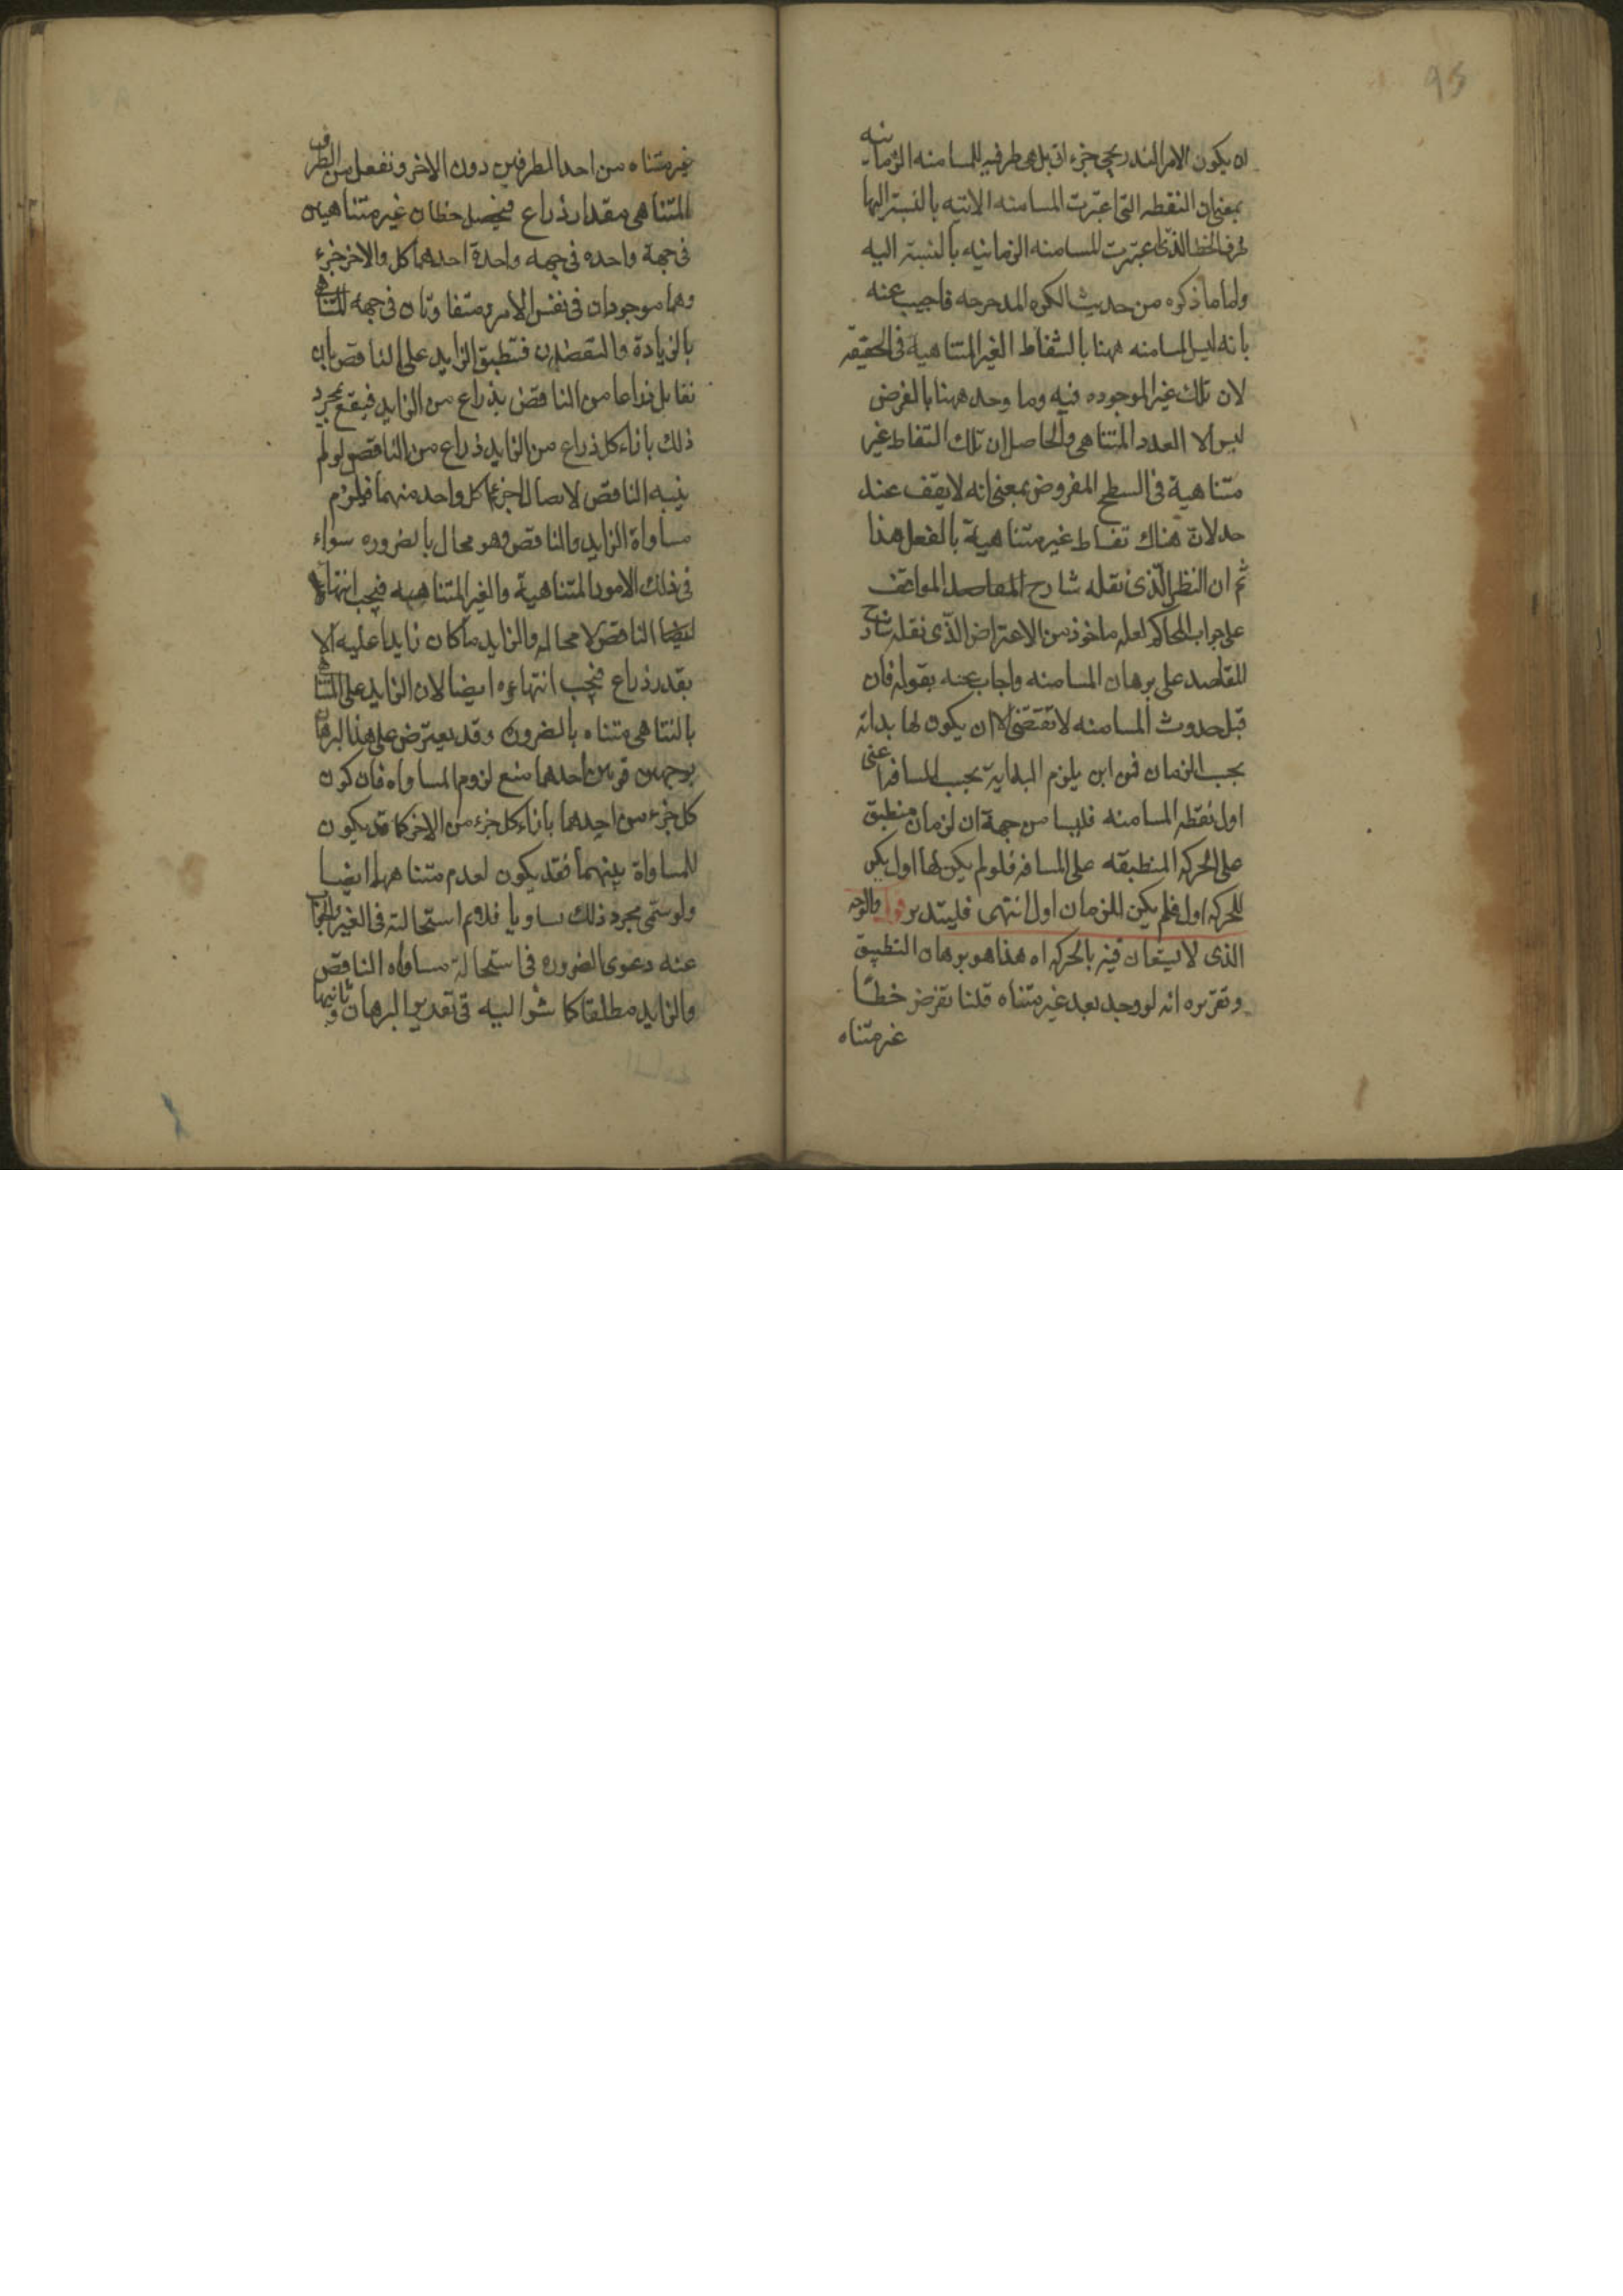 95
ان يكون الامر التدريجي جزء اني بل هي طرفيه للمسامته الزمانيه
بمعنى ان النقطه التي اعتبرت المسامته الانيه بالنسبة اليها
طرف الخط الذي اعتبرت المسامته الزمانيه بالنسبة اليه
واما ما ذكره من حديث الكره المدحرجه فاجيب عنه
بانه ليس المسامته ههنا بالنقاط الغير المتناهية في الحقيقه
لان تلك غير الموجوده فيه وما وجد ههنا بالفرض
ليس الا العدد المتناهي والحاصل ان تلك النقاط غير
متناهية في السطح المفروض بمعنى انه لا يقف عند
حد لان هناك نقاط غير متناهية بالفعل هذا
ثم ان النظر الذي نقله شارح المقاصد المواقف
على جواب المحاكم لعله ماخوذ من الاعتراض الذي نقله شارح
المقاصد على برهان المسامته واجاب عنه بقوله فان
قبل حدوث المسامته لا تقتضي الا ان يكون لها بداية
بحسب الزمان فمن اين يلزم البداية بحسب المسافه اعني
اول نقطه المسامته قلنا من جهة ان الزمان منطبق
على الحركه المنطبقه على المسافه فلو لم يكن لها اول لم يكن
للحركه اول فلم يكن للزمان اول انتهى فليتدبر قوله والوجه
الذي لا يستعان فيه بالحركه اه هذا هو برهان التطبيق
وتقريره انه لو وجد بعد غير متناه قلنا نفرض خطا
غير متناه
غير متناه من احد الطرفين دون الاخر ونفصل من الطرف
المتناهي مقدار ذراع فيحصل خطان غير متناهيين
في جهة واحده في جهه واحدة احدهما كل والاخر جزء
وهما موجودان في نفس الامر ومتفاوتان في جهه التناهي
بالزيادة والنقصان فنطبق الزايد على الناقص بان
نقابل ذراعا من الناقص بذراع من الزايد فيقع بمجرد
ذلك بازاء كل ذراع من الزايد ذراع من الناقص لو لم
ينته الناقص لاتصال اجزاء كل واحد منهما فيلزم
مساواة الزايد والناقص وهو محال بالضروره سواء
في ذلك الامور المتناهية والغير المتناهيه فيجب انتهاء
الناقص لا محاله والزايد ما كان زايدا عليه الا
بقدر ذراع فيجب انتهاءوه ايضا لان الزايد على المتناهي
بالتناهي متناه بالضروره وقد يعترض على هذا البرهان
بوجهين احدهما منع لزوم المساواه فان كون
كل جزء من احدهما بازاء كل جزء من الاخر كما قد يكون
للمساواة بينهما فقد يكون لعدم متناهيهما ايضا
ولو سمى مجرد ذلك تساويا فلا نم استحالته في الغير والجواب
عنه دعوى الضروره في استحالة مساواه الناقص
والزايد مطلقا كما اليه في تقدير البرهان وثانيها